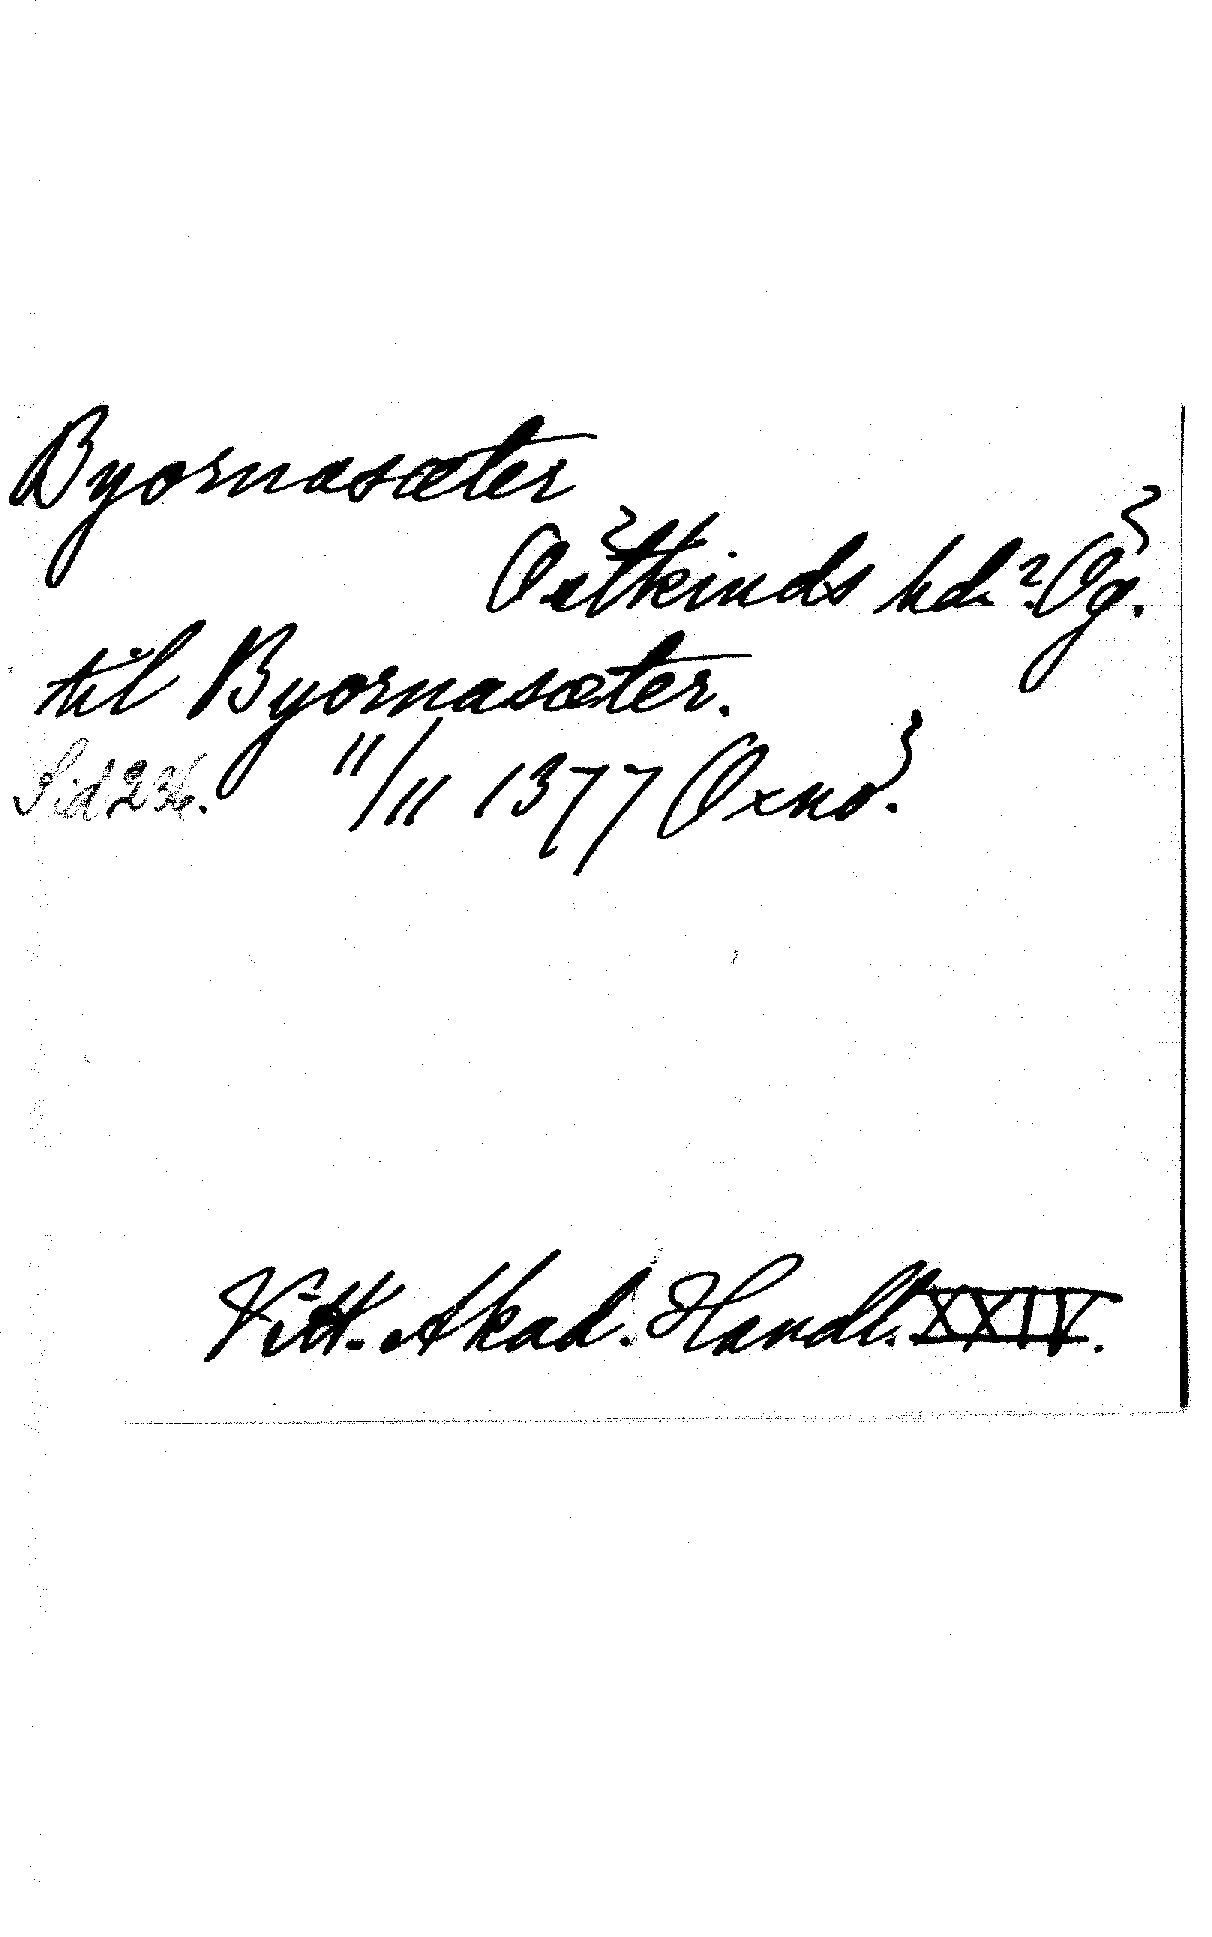 Byornasæter
Östkinds hd? Ög.
til Byornasæter.
Sid 236. 11/11 1377 Öxnö.
Vitt. Akad. Handl. XXIV.